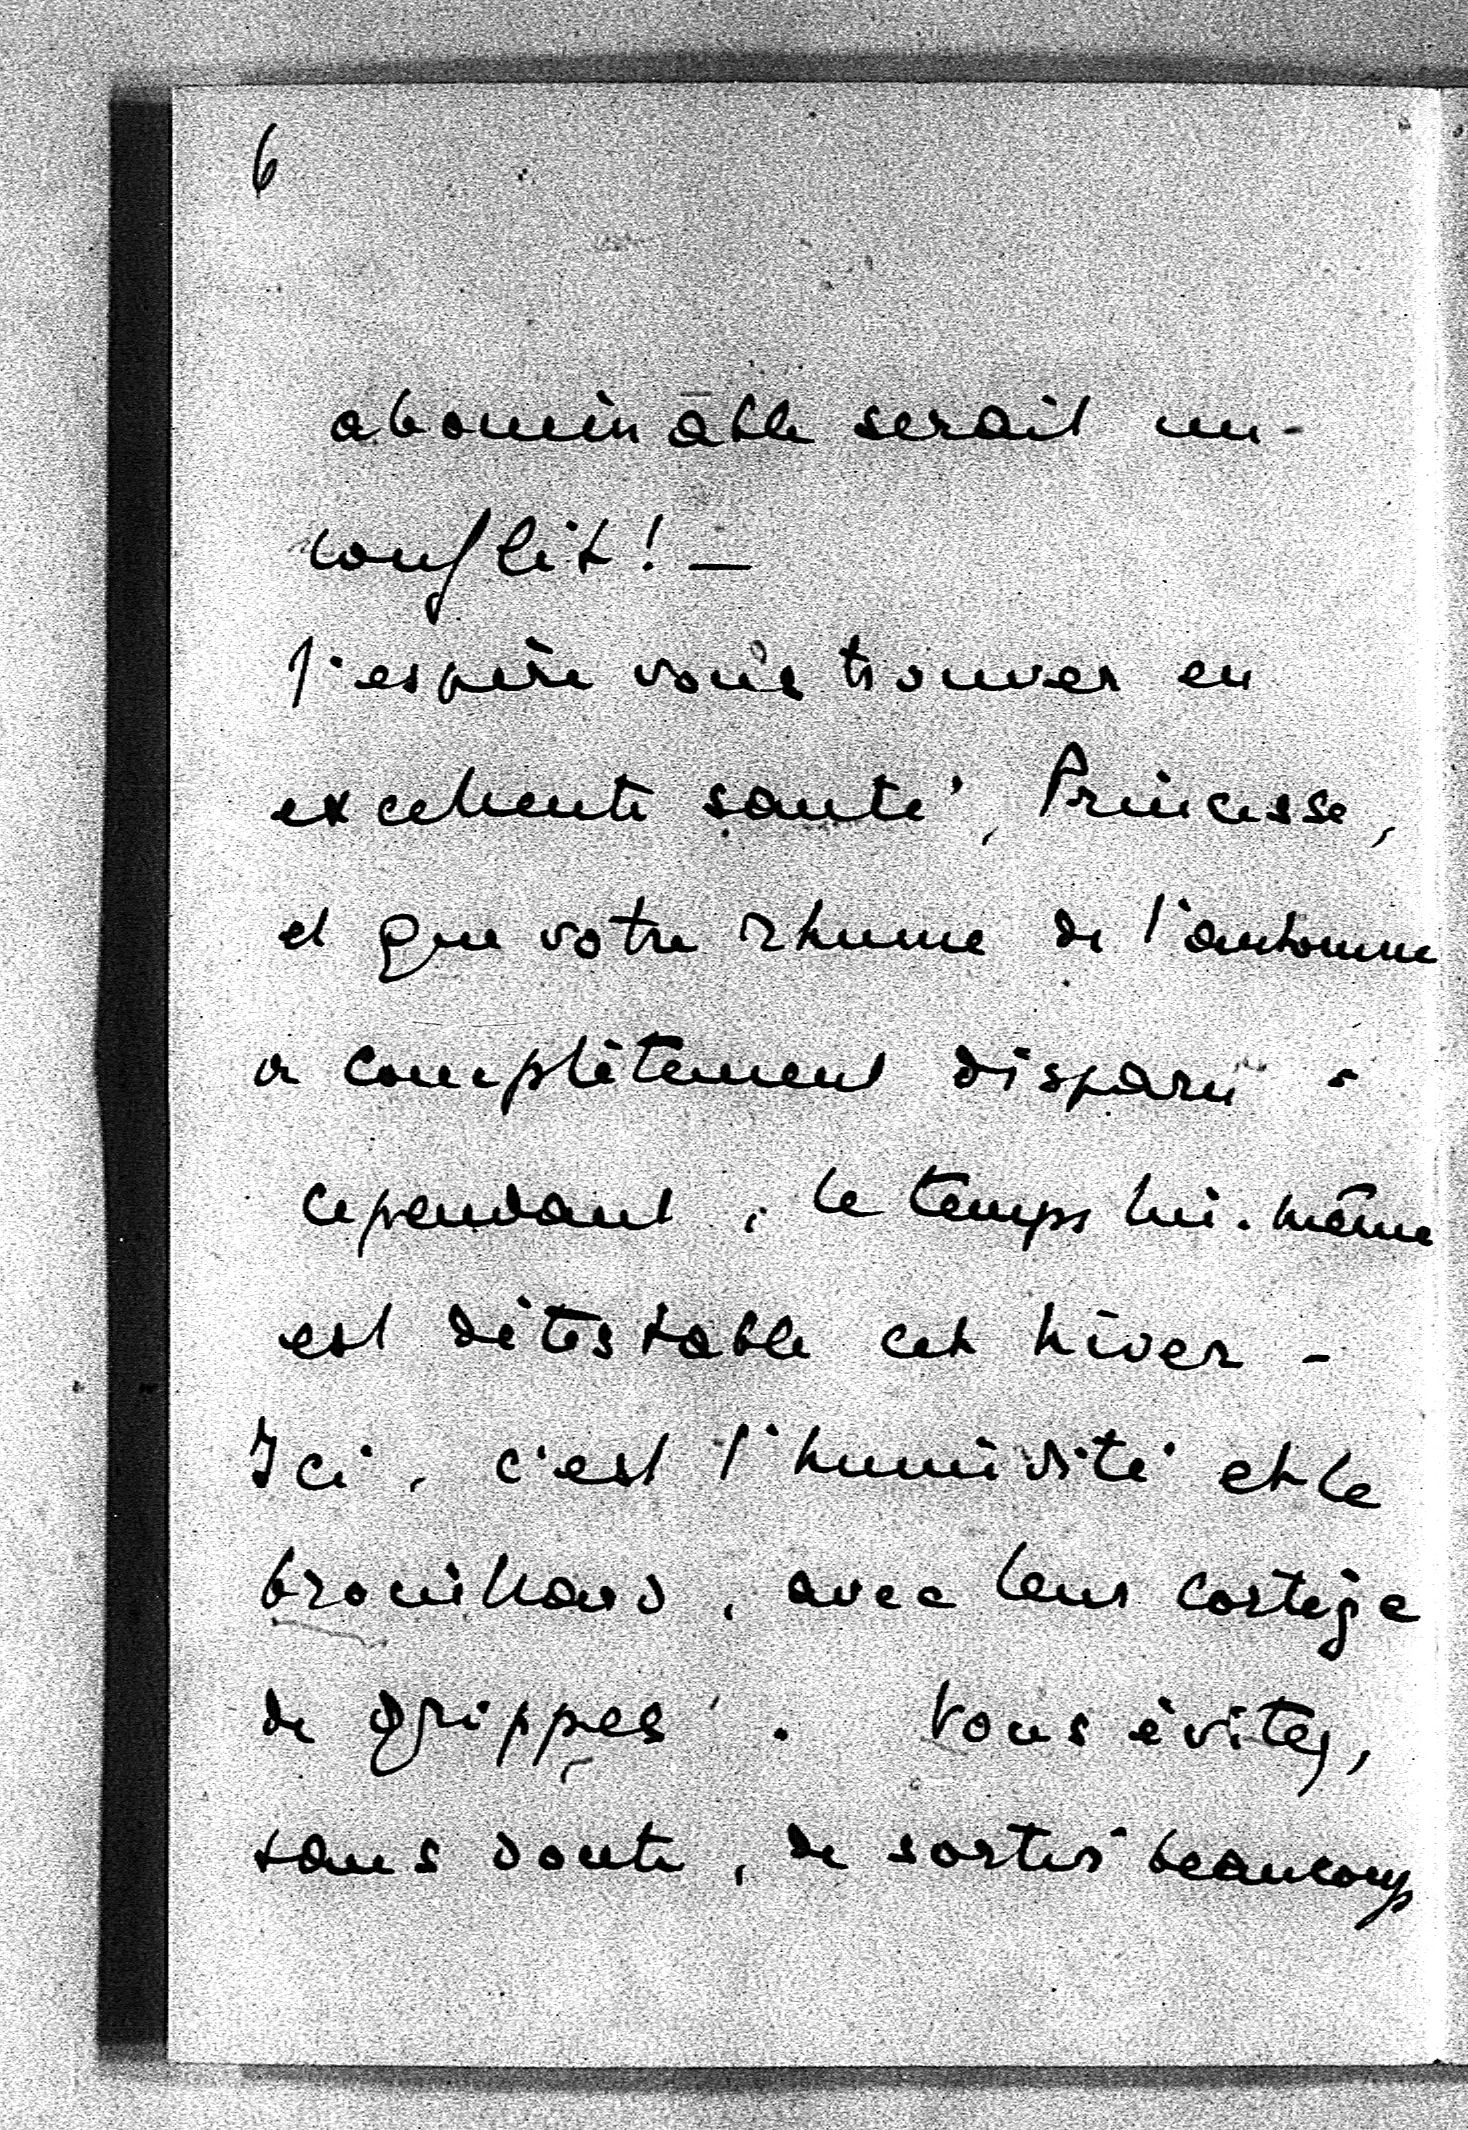 6
abominable serait un
conflit ! —
J'espère vous trouver en
excellente santé, Princesse,
et que votre rhume de l'automne
a complètement disparu -
cependant, le temps lui-même
est détestable cet hiver -
Ici, c'est l'humidité et le
brouillard, avec leur cortège
de grippes. Vous évitez,
sans doute, de sortir beaucoup